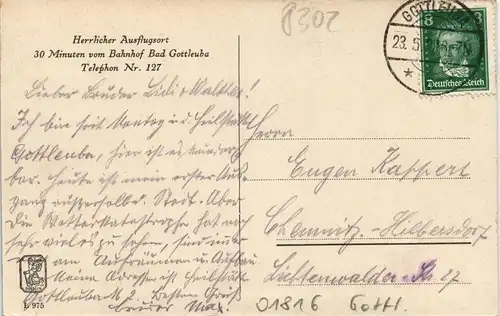 Herrlicher Ausflugsort
30 Minuten vom Bahnhof Bad Gottleuba
Telephon Nr. 127
8302
GOTTLEUBA
23.5
8 8
Deutsches Reich
Lieber Bruder Lidi + Walter!
Ich bin seit Montag i. d. Heilstätte
Gottleuba, hier ist es wunder-
bar. Heute ist mein erster Aus-
gang außerhalb d. Stadt. Aber
die Wetterkatastrophe hat auch
sehr vieles zu sehen, sind
am Aufräumen u. Aufbau
Meine Adresse ist Heilstätte
Gottleuba Besten Gruß
Bruder Max!
Herrn
Eugen Kappert
Chemnitz-Hilbersdorf
Lichtenwalder
01816 Gottl.
L 975